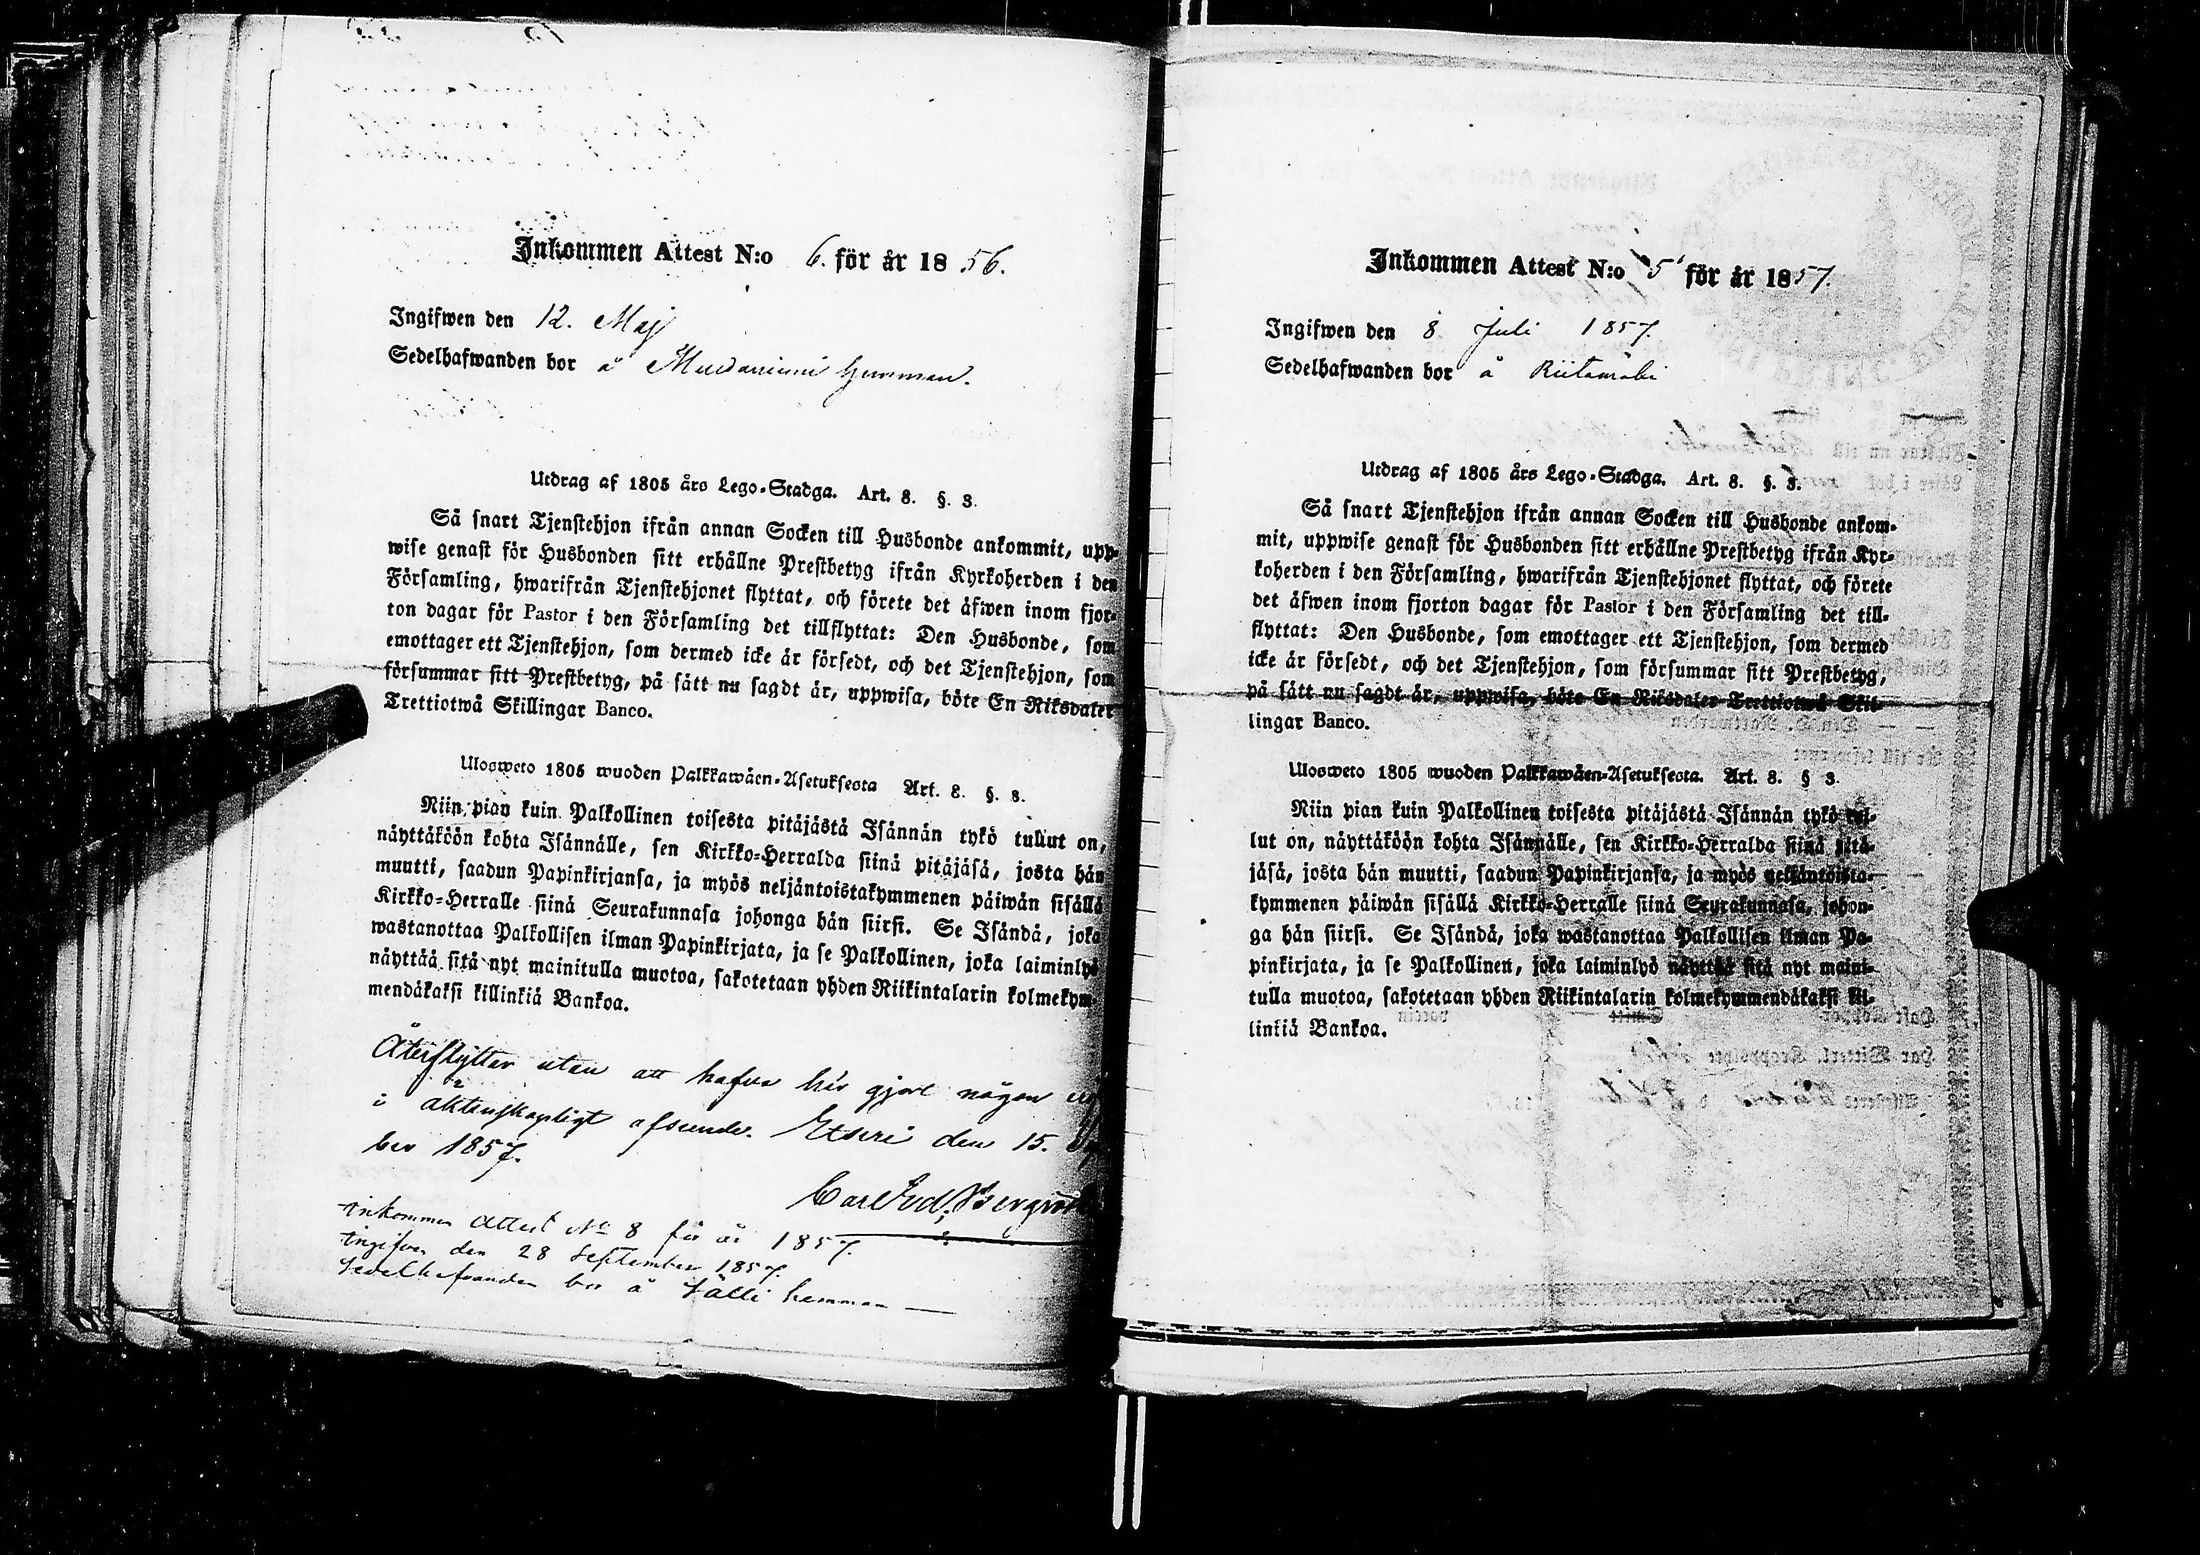 Inkommen Attest N:o 6. för år 1856.
Ingifwen den 12. Maj
Sedelhafwanden bor å hemman.
Utdrag af 1805 års Lego-Stadga. Art. 8. §. 3.
Så snart Tjenstehjon ifrån annan Socken till Husbonde ankommit, upp-
wise genast för Husbonden sitt erhållne Prestbetyg ifrån Kyrkoherden i den
Församling, hwarifrån Tjenstehjonet flyttat, och förete det äfwen inom fjor-
ton dagar för Pastor i den Församling det tillflyttat: Den Husbonde, som
emottager ett Tjenstehjon, som dermed icke är försedt, och det Tjenstehjon, som
försummar sitt Prestbetyg, på sätt nu sagdt är, uppwisa, böte En Riksdaler
Trettiotwå Skillingar Banco.
Ulosweto 1805 wuoden Palkkawäen-Asetuksesta Art. 8. §. 3.
Niin pian kuin Palkollinen toisesta pitäjästä Isännän tykö tullut on,
näyttäköön kohta Isännälle, sen Kirkko-Herralda siinä pitäjäsä, josta hän
muutti, saadun Papinkirjansa, ja myös neljäntoistakymmenen päiwän sisällä
Kirkko-Herralle siinä Seurakunnasa johonga hän siirsi. Se Isändä, joka
wastanottaa Palkollisen ilman Papinkirjata, ja se Palkollinen, joka laiminlyö
näyttää sitä nyt mainitulla muotoa, sakotetaan yhden Riikintalarin kolmekym-
mendäkaksi killinkiä Bankoa.
Återflyttar utan att hafva här gjort någon
i äktenskapligt afseende. Etseri den 15.
ber 1857.
Carl Bergroth
Inkommen Attest No 8 för år 1857.
Ingifven den 28 September 1857.
Sedelhafvanden bor å Sälli hemman —
Inkommen Attest N:o 5 för år 1857.
Ingifwen den 8 Juli 1857.
Sedelhafwanden bor å Riitamäki
Utdrag af 1805 års Lego-Stadga. Art. 8. §. 3.
Så snart Tjenstehjon ifrån annan Socken till Husbonde ankom-
mit, uppwise genast för Husbonden sitt erhållne Prestbetyg ifrån Kyr-
koherden i den Församling, hwarifrån Tjenstehjonet flyttat, och förete
det äfwen inom fjorton dagar för Pastor i den Församling det till-
flyttat: Den Husbonde, som emottager ett Tjenstehjon, som dermed
icke är försedt, och det Tjenstehjon, som försummar sitt Prestbetyg,
på sätt nu sagdt är, uppwisa, böte En Riksdaler Trettiotwå Skil-
lingar Banco.
Ulosweto 1805 wuoden Palkkawäen-Asetuksesta. Art. 8. § 3.
Niin pian kuin Palkollinen toisesta pitäjästä Isännän tykö tul-
lut on, näyttäköön kohta Isännälle, sen Kirkko-Herralda siinä pitä-
jäsä, josta hän muutti, saadun Papinkirjansa, ja myös neljäntoista-
kymmenen päiwän sisällä Kirkko-Herralle siinä Seurakunnasa, johon-
ga hän siirsi. Se Isändä, joka wastanottaa Palkollisen ilman Pa-
pinkirjata, ja se Palkollinen, joka laiminlyö näyttää sitä nyt maini-
tulla muotoa, sakotetaan yhden Riikintalarin kolmekymmendäkaksi kil-
linkiä Bankoa.